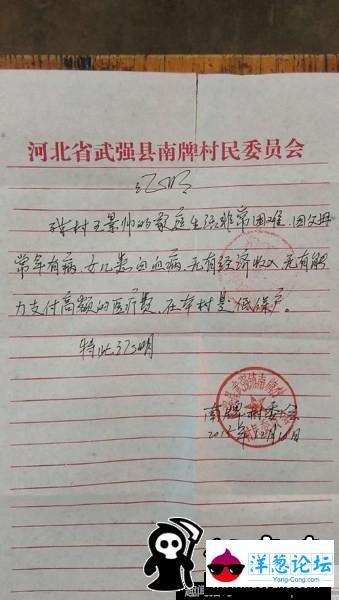 河北省武强县南牌村民委员会
证明
我村王景帅的家庭生活非常困难。因父母
常年有病、女儿患白血病、无有经济收入、无有能
力支付高额的医疗费、在本村是低保户。
特此证明
南牌村委会
12月10日
洋葱论坛
www.Yang-Cong.com